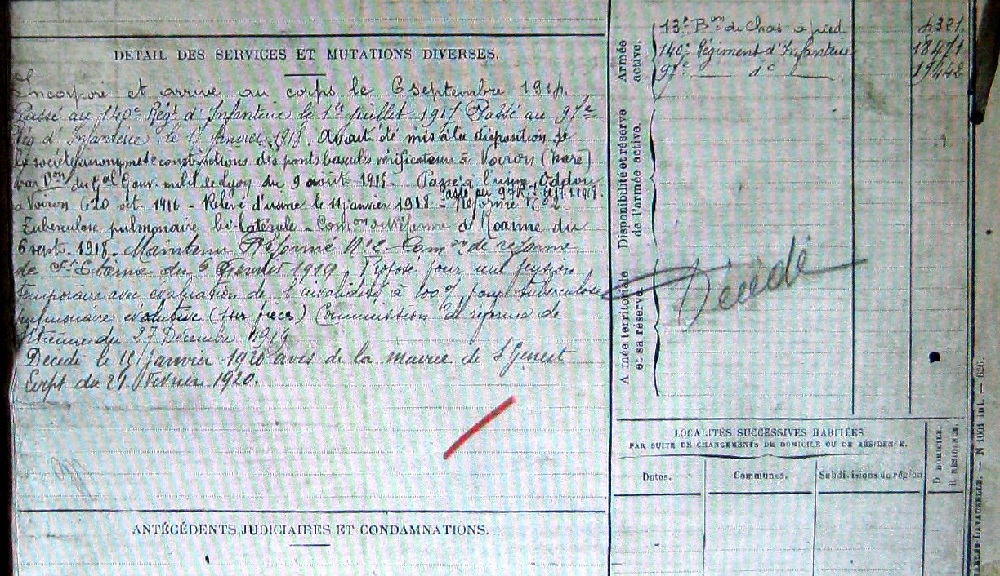 DÉTAIL DES SERVICES ET MUTATIONS DIVERSES.
Incorporé et arrivé au corps le 6 septembre 1914.
Passé au 140e Régt d'Infanterie le 1er Juillet 1917 Passé au 97e
Rég d'Infanterie le 1er Janvier 1918. Avait été mis à la disposition de
la société anonyme de constructions des ponts bascules à Voiron (Isère)
par Don du Gal Gouv. milit. de Lyon du 9 août 1915 - Passé à l'usine
à Voiron le 20 oct. 1916 - Relevé d'usine le 11 janvier 1918 - Réformé N° 2
Tuberculose pulmonaire bi-latérale - Comon de Réforme de Roanne du
6 sept. 1918. Maintenu Réformé N° 2 - Comon de réforme
de St Etienne du 1919. Proposé pour une pension
temporaire avec évaluation de l'invalidité à 100% pour tuberculose
pulmonaire évolutive Commission de réforme de
St Etienne du 27 Décembre 1919
Décédé le Janvier 1920 avis de la mairie de St Genest
Lerpt du 21 Février 1920.
ANTÉCÉDENTS JUDICIAIRES ET CONDAMNATIONS.
Armée
active.
13e Bon de Chas. à pied
140e Régiment d'Infanterie
97e d°
4321
18471
17442
Disponibilité et réserve
de l'armée active.
Armée territoriale
et sa réserve.
Décédé
LOCALITÉS SUCCESSIVES HABITÉES
PAR SUITE DE CHANGEMENTS DE DOMICILE OU DE RÉSIDENCE.
Dates.
Communes.
Subdivisions de région
D. DOMICILE.
R. RÉSIDENCE.